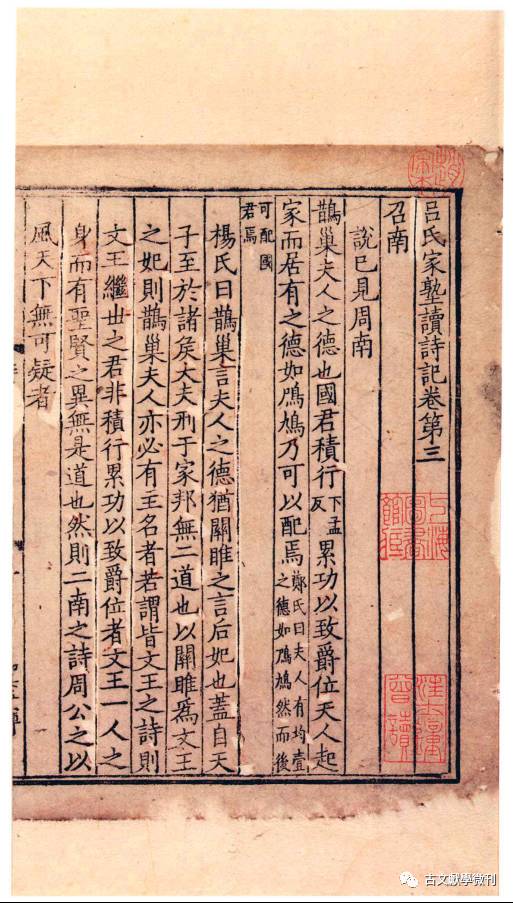 呂氏家塾讀詩記卷第三
召南
說已見周南
鵲巢夫人之德也國君積行下孟反累功以致爵位夫人起
家而居有之德如鳲鳩乃可以配焉鄭氏曰夫人有均壹之德如鳲鳩然而後
可配國君焉
楊氏曰鵲巢言夫人之德猶關雎之言后妃也蓋自天
子至於諸矦大夫刑于家邦無二道也以關雎爲文王
之妃則鵲巢夫人亦必有主名者若謂皆文王之詩則
文王繼世之君非積行累功以致爵位者文王一人之
身而有聖賢之異無是道也然則二南之詩周公之以
風天下無可疑者
上海圖書館藏
汪士鐘曾讀
古文獻學微刊